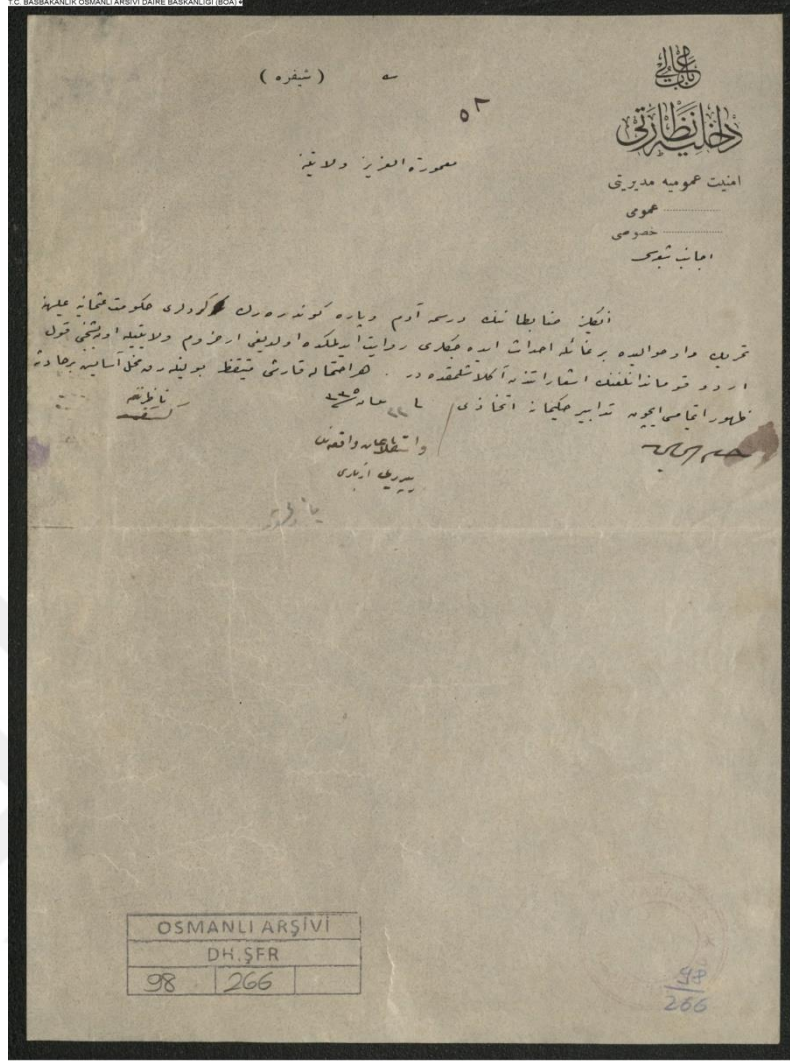 T.C. BAŞBAKANLIK OSMANLI ARŞİVİ DAİRE BAŞKANLIĞI (BOA)
باب عالی
داخلیه نظارتی
امنیت عمومیه مدیریتی
عمومی
خصوصی
اجانب شعبه‌سی
( شیفره )
٥٢
معمورة العزیز ولایتنه
انکلیز ضابطاننك درسمه آدم وپاره کوندره‌رك کردلری حکومت عثمانیه علیهنه
تحریك واو حوالیده بر غائله احداث ایده‌جکلری روایت ایدیلمکده اولدیغی ارضروم ولایتیله اون بشنجی قول
اردو قوماندانلغنك اشعاراتندن آکلاشلمقده‌در . هر احتماله قارشی متیقظ بولنه‌رق مخل آسایش بر حادثه
ظهور ایتمامسی ایچون تدابیر حکیمانه اتخاذی
واقعه‌نك
OSMANLI ARŞİVİ
DH.ŞFR
98 266
98
266